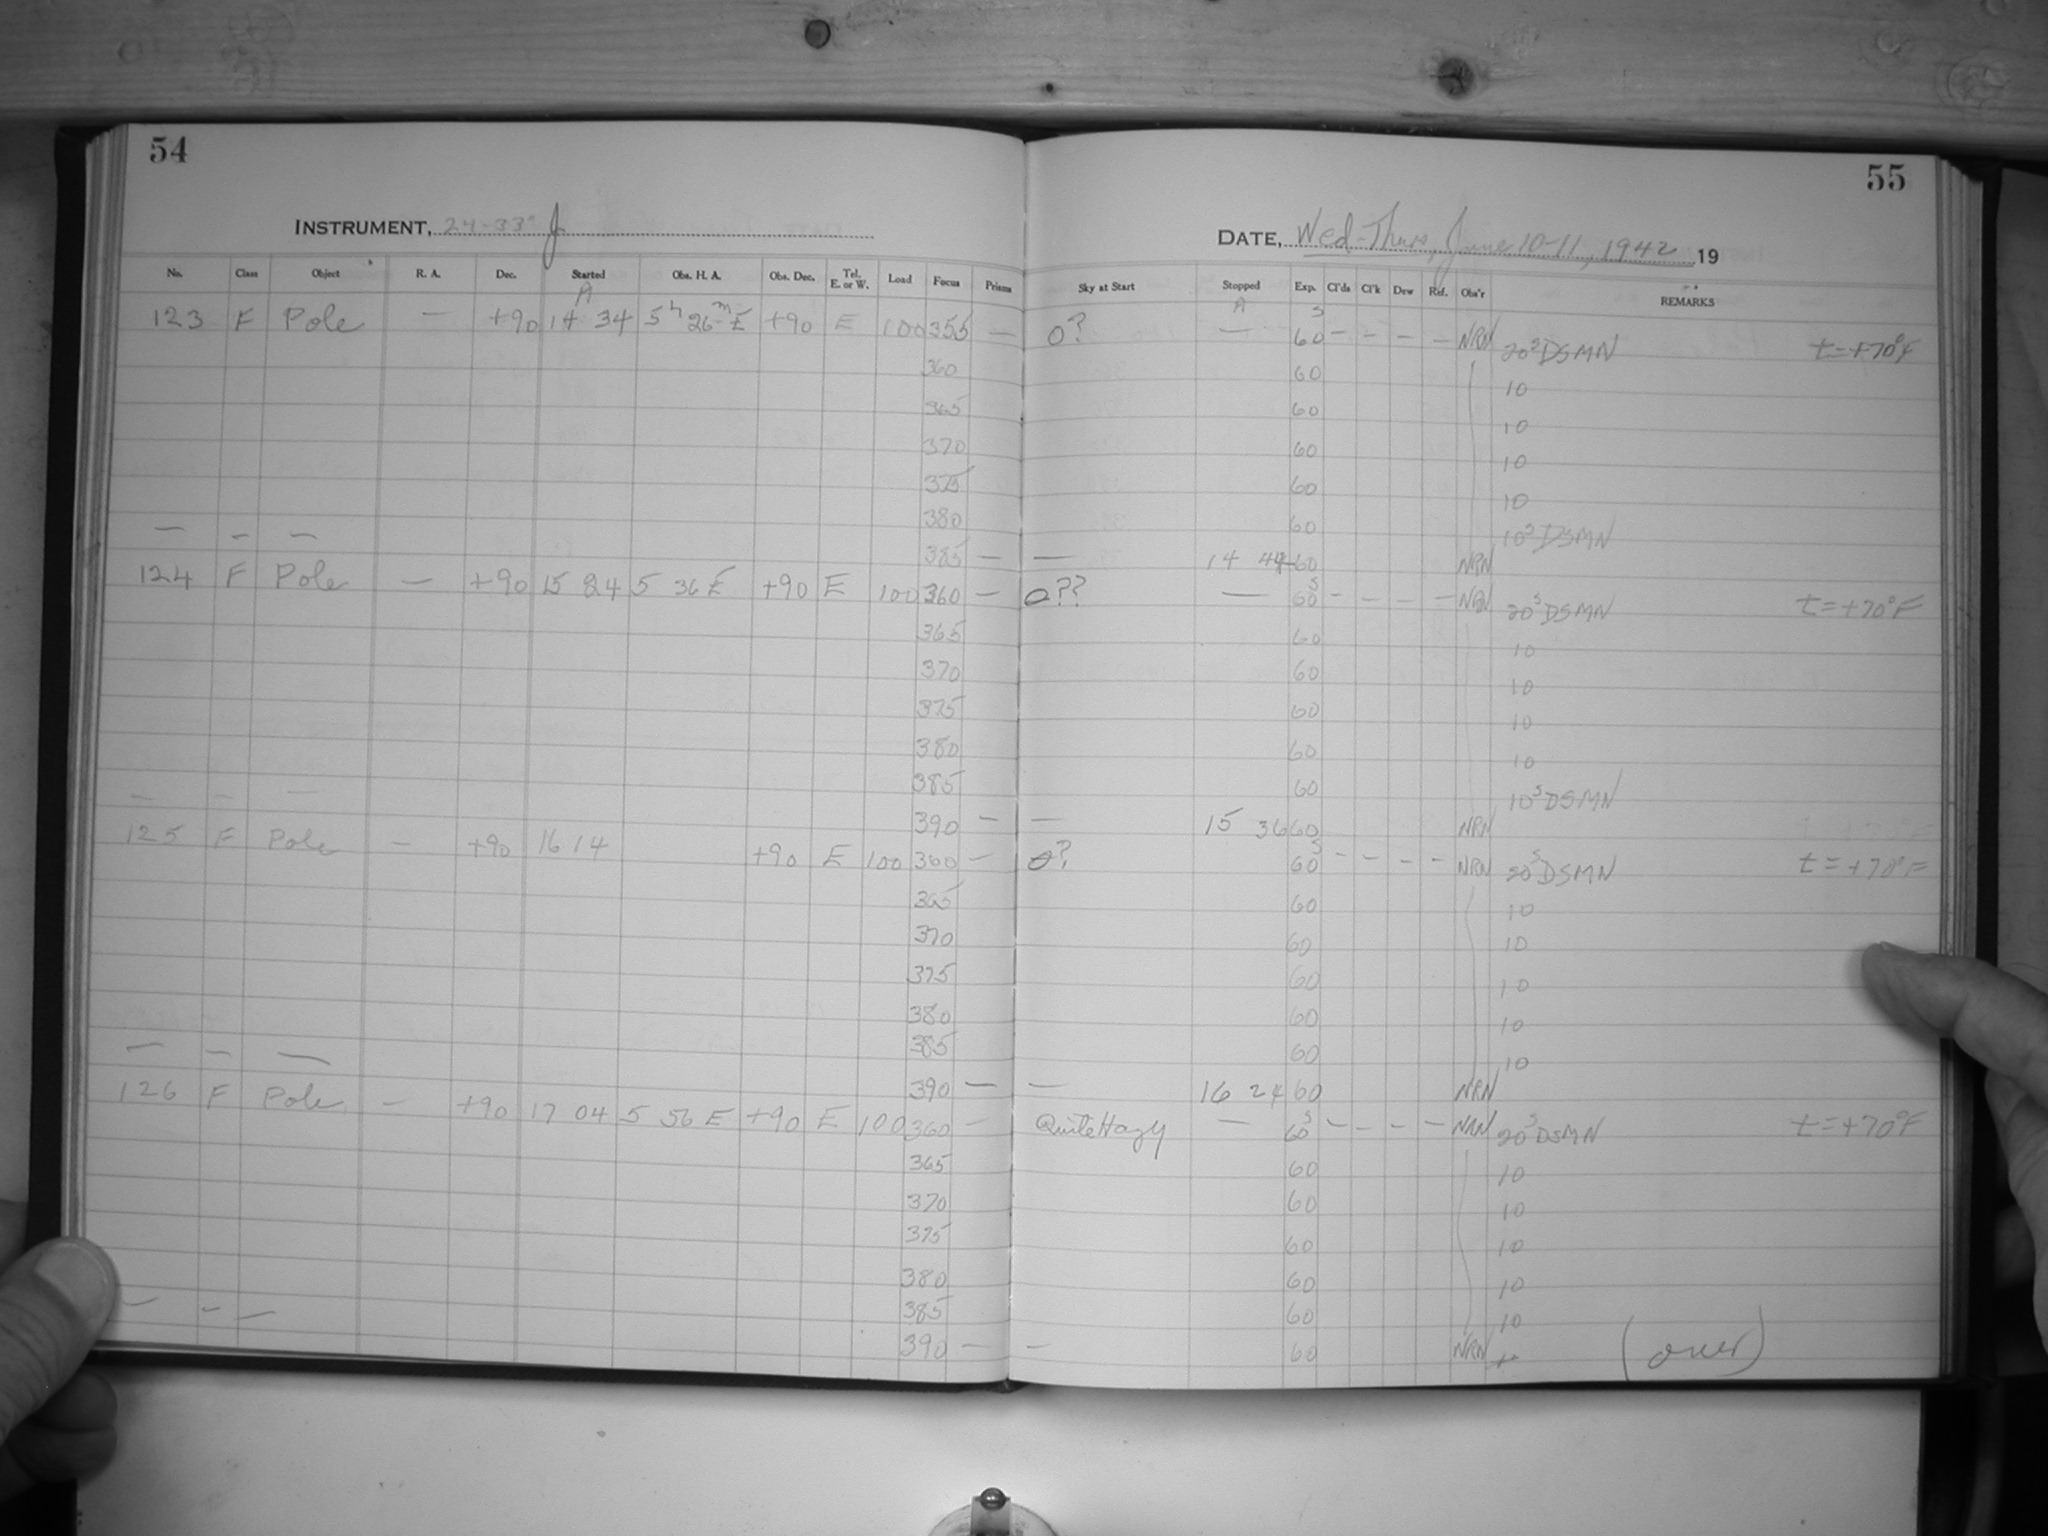 54
INSTRUMENT, 24-33" J
No. Class Object R. A. Dec. Started Obs. H. A. Obs. Dec. Tel. E. or W. Load Focus Prisms
A
123 F Pole — +90 14 34 5h 26m E +90 E 100 355 —
360
365
370
375
380
— — — 385 —
124 F Pole — +90 15 24 5 36 E +90 E 100 360 —
365
370
375
380
385
— — — 390 —
125 F Pole — +90 16 14 +90 E 100 360 —
365
370
375
380
385
— — — 390 —
126 F Pole — +90 17 04 5 56 E +90 E 100 360 —
365
370
375
380
385
— — — 390 —
55
DATE, Wed-Thurs, June 10-11, 1942 19
Sky at Start Stopped Exp. Cl'ds Cl'k Dew Ref. Obs'r REMARKS
A
0? — 60s — — — — NRN 20s DSMN t=+70°F
60 10
60 10
60 10
60 10
60 10s DSMN
— 14 44 60 NRN
0?? — 60s — — — — NRN 20s DSMN t=+70°F
60 10
60 10
60 10
60 10
60 10s DSMN
— 15 36 60 NRN
0? 60s — — — — NRN 20s DSMN t=+70°F
60 10
60 10
60 10
60 10
60 10
— 16 24 60 NRN
Quite Hazy — 60s — — — — NRN 20s DSMN t=+70°F
60 10
60 10
60 10
60 10
60 10
— 60 NRN (over)